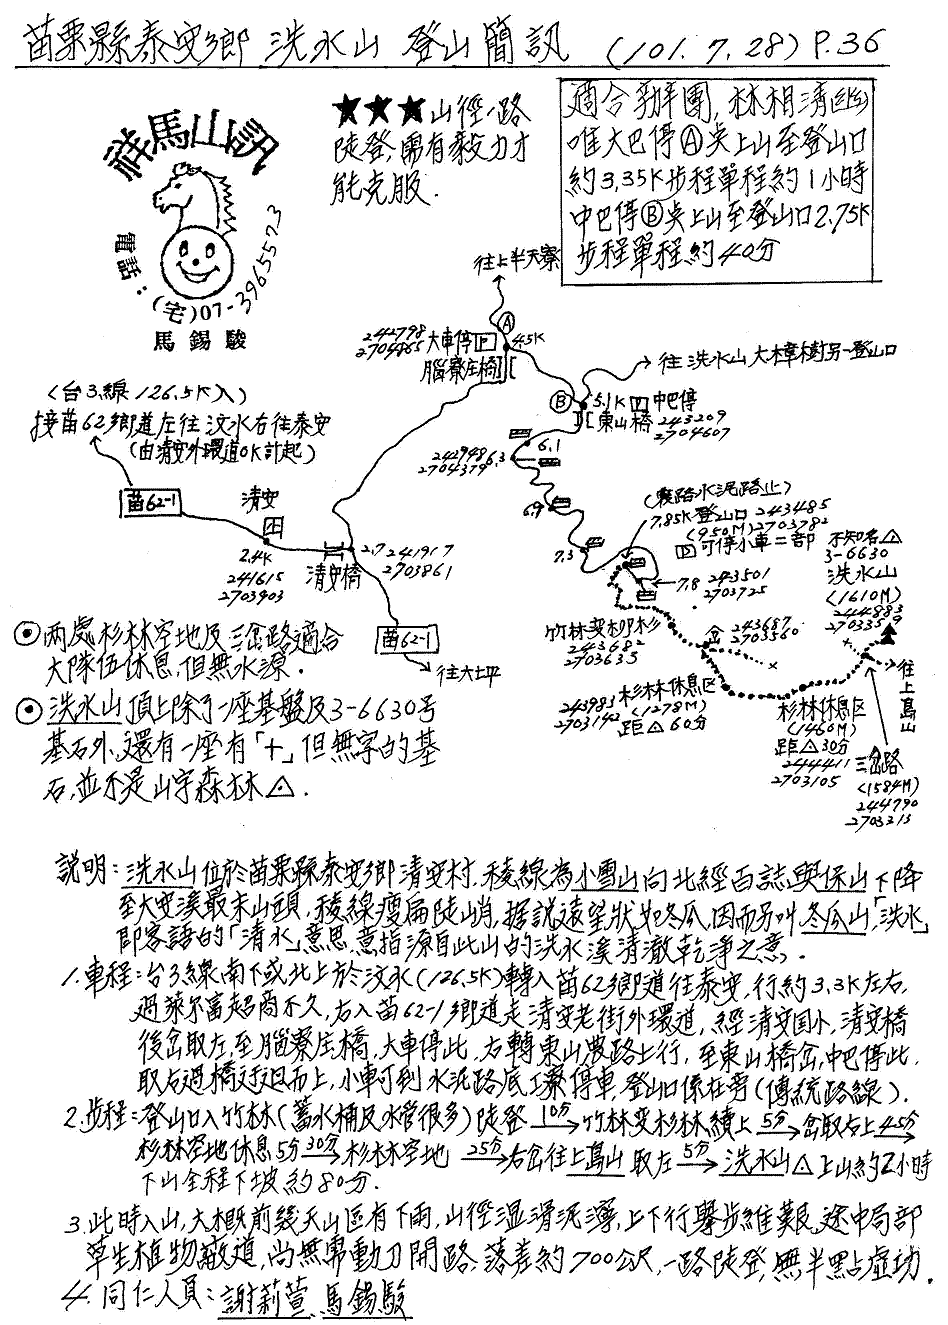 苗栗縣泰安鄉 洗水山 登山簡訊 (101.7.28) P.36
祥馬山訊
電話:(宅)07-3965573
馬錫駿
★★★山徑一路
陡登,需有毅力才
能克服.
適合辦團,林相清幽
唯大巴停Ⓐ點上山至登山口
約3,35K步程單程約1小時
中巴停Ⓑ點上山至登山口2.75K
步程單程約40分
往上半天寮
Ⓐ
242798
2704865
大車停 P 4.5K
腦寮庄橋
往洗水山大樟樹另一登山口
Ⓑ
5.1K P 中巴停
東山橋 243209
2704607
(台3線126.5K入)
接苗62鄉道左往汶水右往泰安
(由清安外環道0K計起)
苗62-1
清安
2.4K
241615
2703903
清安橋
2.7 241917
2703861
苗62-1
往六上坪
6.1
6.3
242948
2704379
6.9
7.3
(農路水泥路止)
7.85K登山口 243485
(950M) 2703782
P 可停小車二部
7.8 243501
2703725
不知名△
3-6630
洗水山
(1610M)
244883
2703359
竹林變柳杉
243682
2703635
岔 243687
2703560
杉林休息區
(1278M)
距△60分
243983
2703142
杉林休息區
(1460M)
距△30分
244411
2703105
往上島山
三岔路
(1584M)
244790
2703213
⊙兩處杉林空地及三岔路適合
大隊伍休息,但無水源.
⊙洗水山頂上除了一座基盤及3-6630号
基石外,還有一座有「+」但無字的基
石,並不是山字森林△.
說明:洗水山位於苗栗縣泰安鄉清安村,稜線為小雪山向北經百誌與保山下降
至大安溪最末山頭,稜線瘦扁陡峭,據說遠望狀如冬瓜,因而另叫冬瓜山「洗水」
即客語的「清水」意思,意指源自此山的洗水溪清澈乾淨之意.
1.車程:台3線南下或北上於汶水(126.5K)轉入苗62鄉道往泰安,行約3.3K左右,
過萊尔富超商不久,右入苗62-1鄉道走清安老街外環道,經清安國小,清安橋
後岔取左,至腦寮庄橋,大車停此,右轉東山農路上行,至東山橋岔,中巴停此,
取右過橋迂迴而上,小車可到水泥路底工寮停車,登山口係在旁(傳統路線).
2.步程:登山口入竹林(蓄水桶及水管很多)陡登 10分→ 竹林變杉林續上 5分→ 岔取右上 45分→
杉林空地休息5分 30分→ 杉林空地 25分→ 右岔往上島山取左 5分→ 洗水山△上山約2小時
下山全程下坡約80分.
3.此時入山,大概前幾天山區有下雨,山徑溫滑泥濘,上下行舉步維艱,途中局部
草生植物蔽道,尚無需動刀開路,落差約700公尺,一路陡登,無半點虛功.
4.同仁人員:謝莉萱、馬錫駿